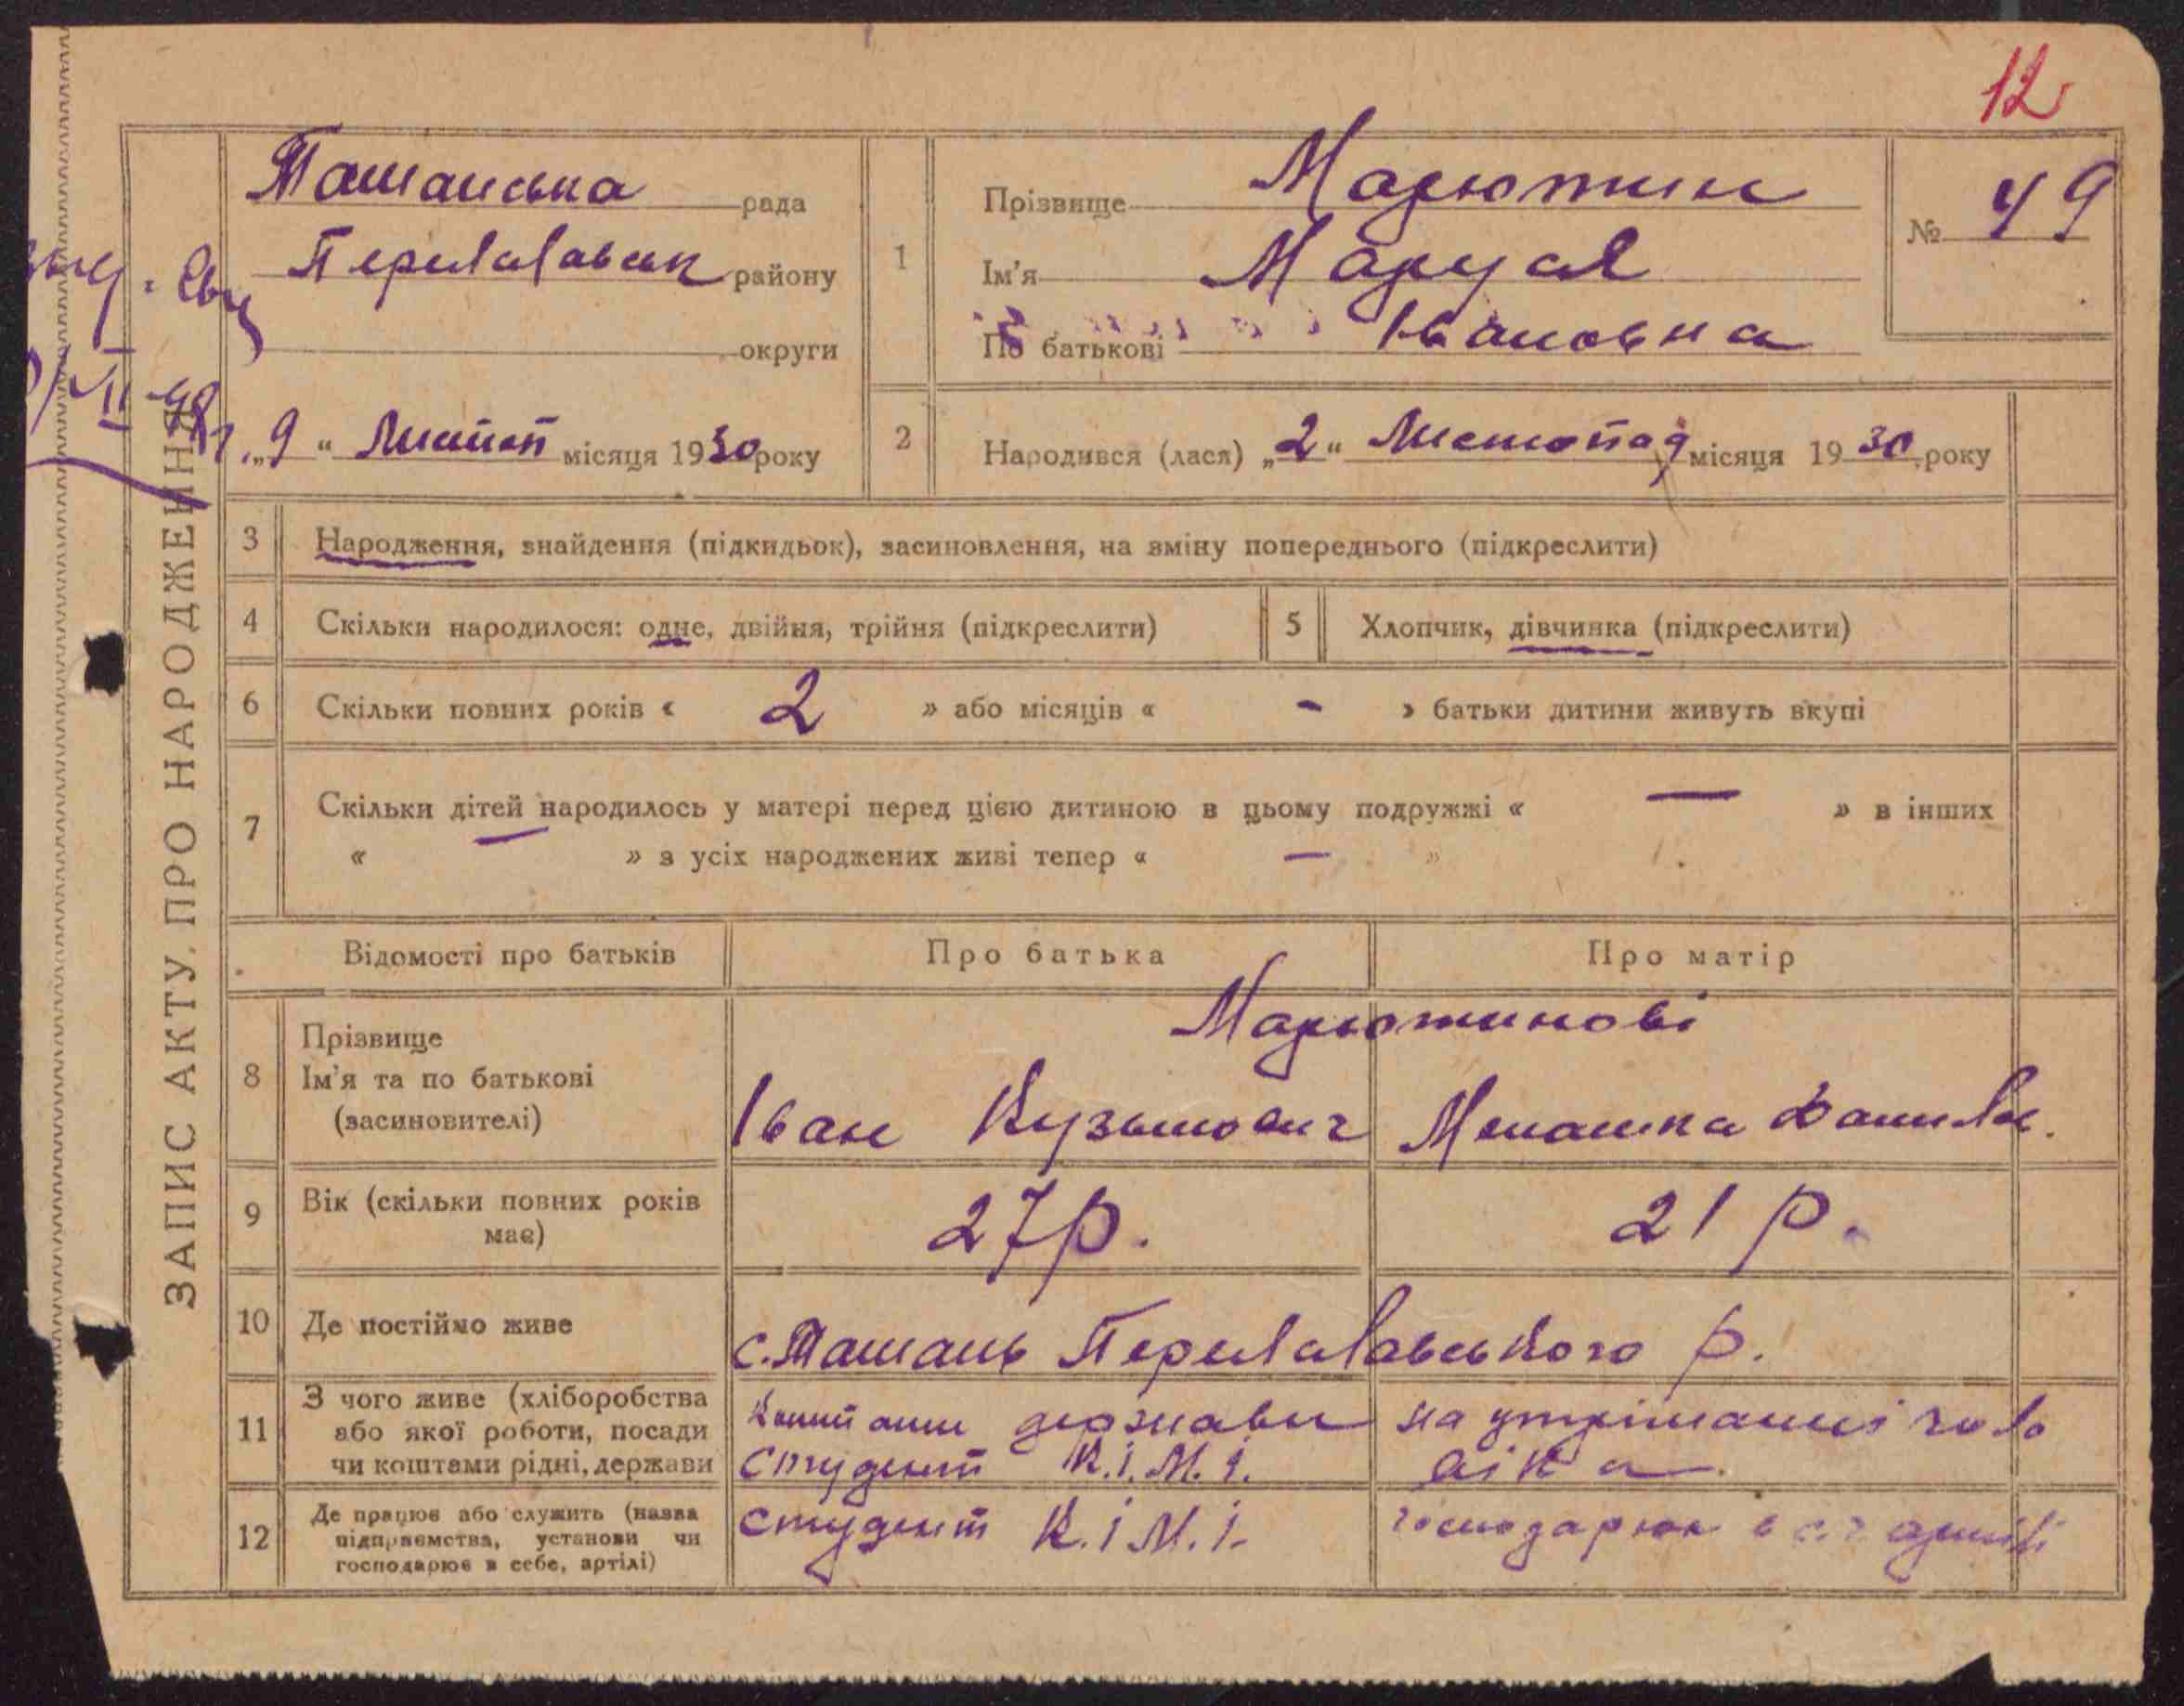 12
Ташанська рада
Переяславськ району
округи
"9" Листоп місяця 1930 року
1
Прізвище Марютин
Ім'я Маруся
По батькові Івановна
№ 49
2
Народився (лася) "2" Листопад місяця 1930 року
ЗАПИС АКТУ ПРО НАРОДЖЕННЯ
3 Народження, знайдення (підкидьок), засиновлення, на зміну попереднього (підкреслити)
4 Скільки народилося: одне, двійня, трійня (підкреслити)
5 Хлопчик, дівчинка (підкреслити)
6 Скільки повних років « 2 » або місяців « - » батьки дитини живуть вкупі
7 Скільки дітей народилось у матері перед цією дитиною в цьому подружжі « — » в інших
« — » з усіх народжених живі тепер « — »
Відомості про батьків Про батька Про матір
Марютинові
8 Прізвище
Ім'я та по батькові
(засиновителі)
Іван Кузьмович Мелашка Данилов.
9 Вік (скільки повних років
має)
27 р. 21 р.
10 Де постійно живе
с. Ташань Переяславського р.
11 З чого живе (хліборобства
або якої роботи, посади
чи коштами рідні, держави
коштами держави
студент К.І.М.І.
на утріманні чоло
віка
12 Де працює або служить (назва
підприємства, установи чи
господарює в себе, артілі)
студент К.І.М.І.
господарює в с.г. артілі